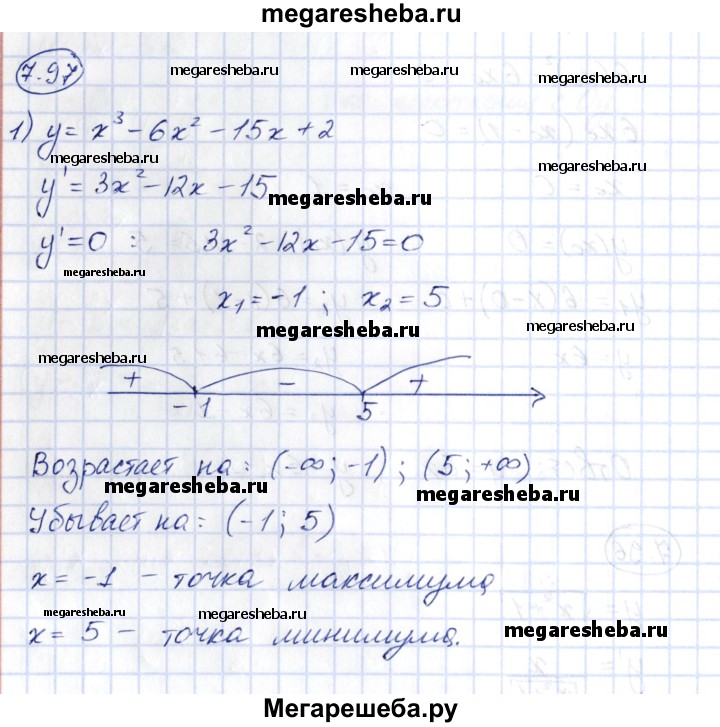 megaresheba.ru
7.97
megaresheba.ru megaresheba.ru
1) y = x³ - 6x² - 15x + 2
megaresheba.ru megaresheba.ru
y' = 3x² - 12x - 15
megaresheba.ru
y' = 0 : 3x² - 12x - 15 = 0
megaresheba.ru
x₁ = -1 ; x₂ = 5
megaresheba.ru
megaresheba.ru megaresheba.ru
+ - +
-1 5
Возрастает на: (-∞; -1) ; (5; +∞)
megaresheba.ru megaresheba.ru
Убывает на: (-1; 5)
x = -1 - точка максимума
megaresheba.ru megaresheba.ru
x = 5 - точка минимума.
megaresheba.ru
Мегарешеба.ру